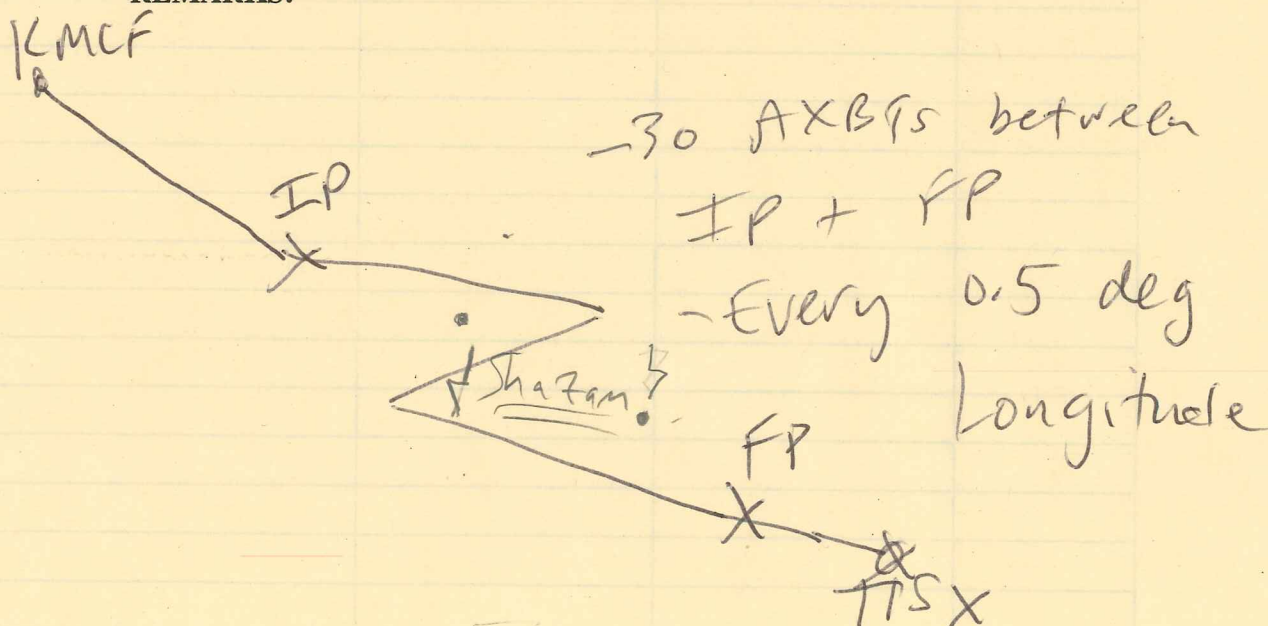 REMARKS:
KMCF
-30 AXBTs between
IP
IP + FP
-Every 0.5 deg
Longitude
Shazam!
FP
TISX